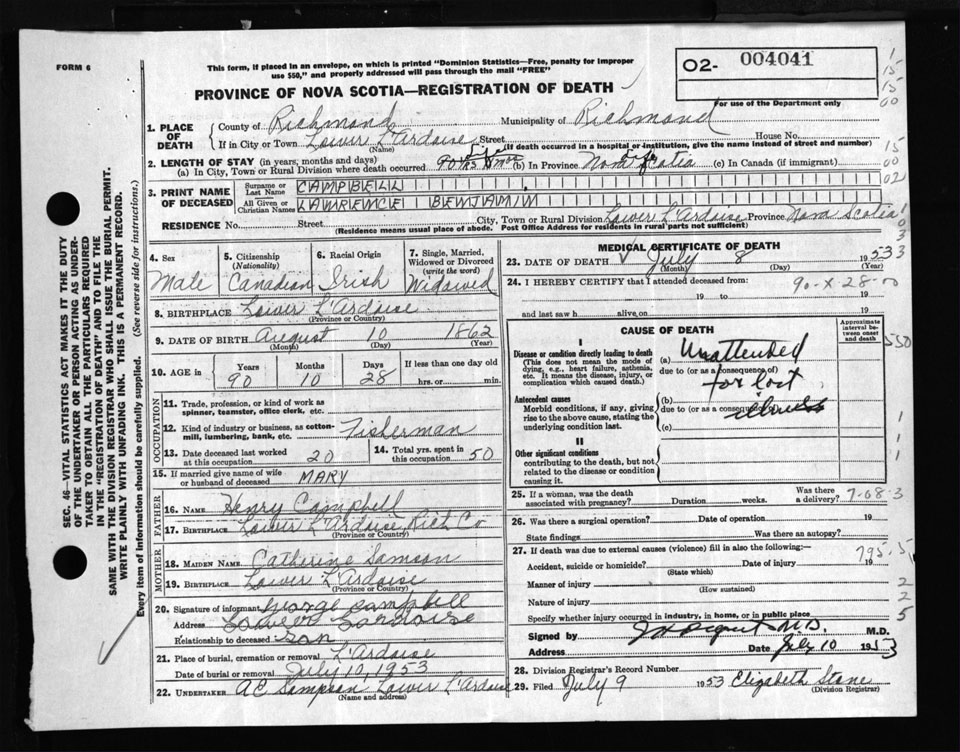 FORM 6
This form, if placed in an envelope, on which is printed "Dominion Statistics—Free, penalty for improper
use $50," and properly addressed will pass through the mail "FREE"
PROVINCE OF NOVA SCOTIA—REGISTRATION OF DEATH
02- 004041
For use of the Department only
1. PLACE OF DEATH County of Richmond Municipality of Richmond
If in City or Town Lower L'Ardoise Street House No.
(Name) (If death occurred in a hospital or institution, give the name instead of street and number)
2. LENGTH OF STAY (in years, months and days)
(a) In City, Town or Rural Division where death occurred (b) In Province Nova Scotia (c) In Canada (if immigrant)
3. PRINT NAME OF DECEASED Surname or Last Name CAMPBELL
All Given or Christian Names LAWRENCE BENJAMIN
RESIDENCE No. Street City, Town or Rural Division Lower L'Ardoise Province Nova Scotia
(Residence means usual place of abode. Post Office Address for residents in rural parts not sufficient)
4. Sex Male
5. Citizenship (Nationality) Canadian
6. Racial Origin Irish
7. Single, Married, Widowed or Divorced (write the word) Widowed
8. BIRTHPLACE Lower L'Ardoise
(Province or Country)
9. DATE OF BIRTH August 10 1862
(Month) (Day) (Year)
10. AGE in Years 90 Months 10 Days 28 If less than one day hrs. or min.
OCCUPATION
11. Trade, profession, or kind of work as spinner, teamster, office clerk, etc.
12. Kind of industry or business, as cotton-mill, lumbering, bank, etc. Fisherman
13. Date deceased last worked at this occupation 20
14. Total yrs. spent in this occupation 50
15. If married give name of wife or husband of deceased MARY
FATHER
16. NAME Henry Campbell
17. BIRTHPLACE Lower L'Ardoise, Rich Co
(Province or Country)
MOTHER
18. MAIDEN NAME Catherine Samson
19. BIRTHPLACE Lower L'Ardoise
(Province or Country)
20. Signature of informant George Campbell
Address Lower Lardoise
Relationship to deceased Son
21. Place of burial, cremation or removal L'Ardoise
Date of burial or removal July 10, 1953
22. UNDERTAKER A C Sampson Lower L'Ardoise
(Name and address)
MEDICAL CERTIFICATE OF DEATH
23. DATE OF DEATH July 8 1953
(Month) (Day) (Year)
24. I HEREBY CERTIFY that I attended deceased from: 90-X-28-00
19 to 19
and last saw h alive on 19
CAUSE OF DEATH
Approximate interval between onset and death
I
Disease or condition directly leading to death
(This does not mean the mode of dying, e.g., heart failure, asthenia, etc. It means the disease, injury, or complication which caused death.)
(a) Unattended
due to (or as a consequence of)
for last
Antecedent causes
Morbid conditions, if any, giving rise to the above cause, stating the underlying condition last.
(b)
due to (or as a consequence of)
illness
(c)
II
Other significant conditions
contributing to the death, but not related to the disease or condition causing it.
25. If a woman, was the death associated with pregnancy? Duration weeks. Was there a delivery? 7-68-3
26. Was there a surgical operation? Date of operation 19
State findings Was there an autopsy?
27. If death was due to external causes (violence) fill in also the following:— 795.5
Accident, suicide or homicide? Date of injury 19
(State which)
Manner of injury
(How sustained)
Nature of injury
Specify whether injury occurred in industry, in home, or in public place
Signed by M.D.
Address Date July 10 1953
28. Division Registrar's Record Number
29. Filed July 9 1953 Elizabeth Stone
(Division Registrar)
SEC. 46—VITAL STATISTICS ACT MAKES IT THE DUTY
OF THE UNDERTAKER OR PERSON ACTING AS UNDER-
TAKER TO OBTAIN ALL THE PARTICULARS REQUIRED
IN THE "REGISTRATION OF DEATH" AND TO FILE THE
SAME WITH THE DIVISION REGISTRAR WHO SHALL ISSUE THE BURIAL PERMIT.
WRITE PLAINLY WITH UNFADING INK. THIS IS A PERMANENT RECORD.
Every item of information should be carefully supplied. (See reverse side for instructions.)